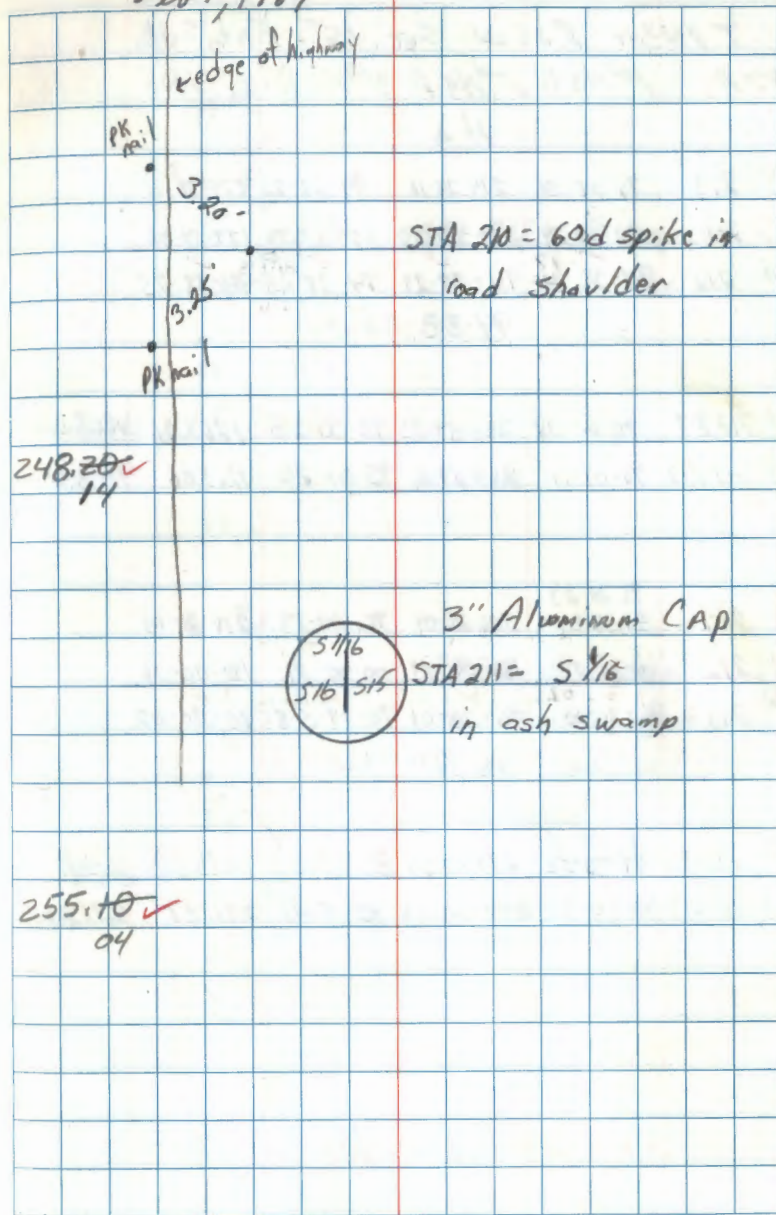 edge of highway
PK
nail
3.20
STA 210 = 60d spike in
road shoulder
3.25
PK nail
248.20
14
3" Aluminum CAP
S 1/16
S16 S15
STA 211 = S 1/16
in ash swamp
255.10
04